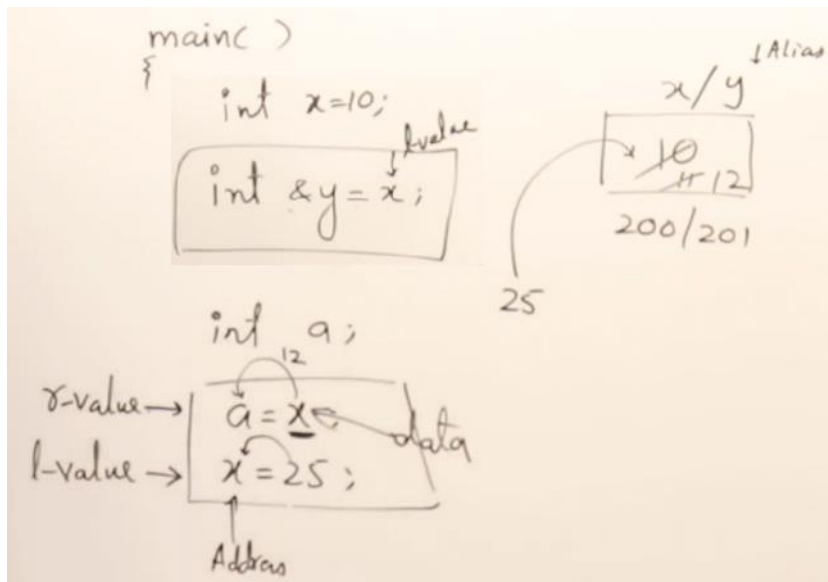 main( )
{
int x=10;
l-value
int &y = x;
↓Alias
x/y
10
11 12
200/201
25
int a;
12
r-value→ a = x; data
l-value → x = 25;
Address